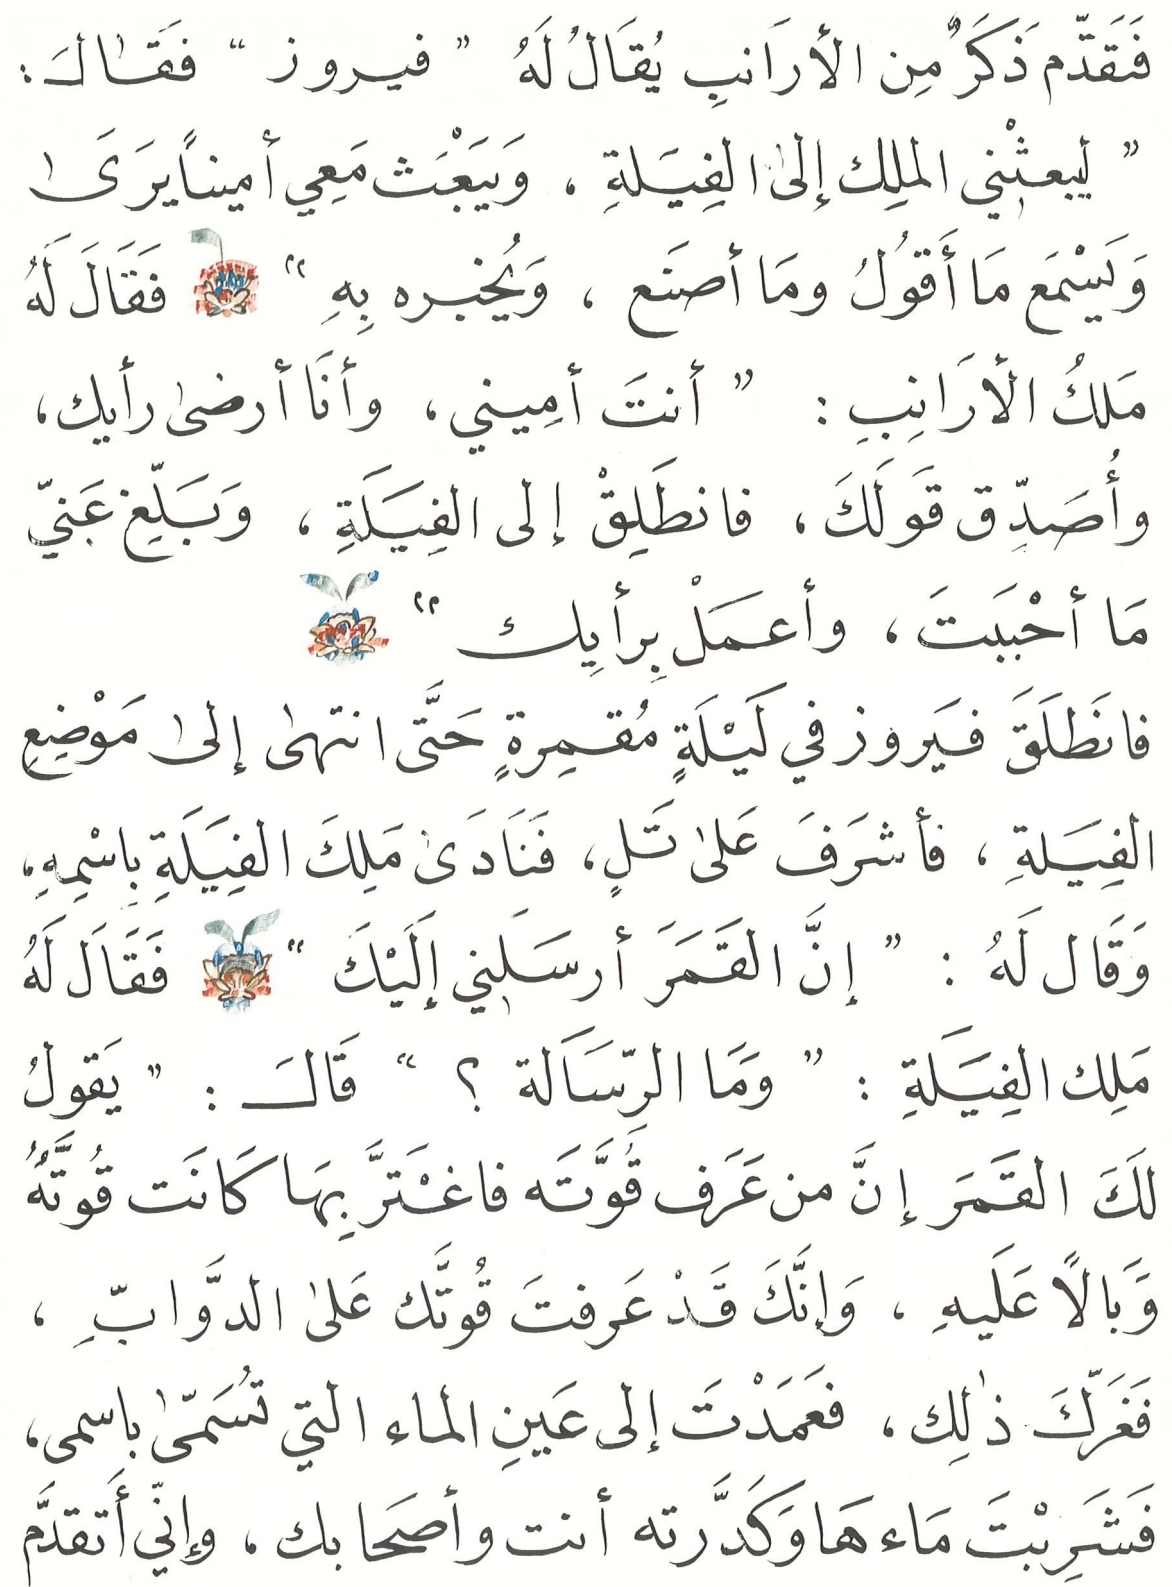 فَتَقَدَّم ذَكَرٌ مِن الأرَانبِ يُقَالُ لَهُ ” فيروز “ فقَالَ :
” ليبعثْني الملِك إلىٰ الفِيَلةِ ، وَيَبْعَث مَعِي أميناً يرَىَ ٰ
وَيَسْمَع مَا أَقولُ ومَا أصنَع ، وَيُخبره بِهِ “ فَقَالَ لَهُ
مَلكُ الأرَانِبِ : ” أنتَ أمِيني ، وأنَا أرضىٰ رأيك ،
وأُصَدِّق قَولَكَ ، فانطَلِقْ إلى الفِيَلَةِ ، وَبَلِّغ عَنيّ
مَا أحْبَبتَ ، وأعمَلْ بِرأيِك “
فانَطَلَقَ فيَروز في لَيْلَةٍ مُقمِرةٍ حَتَّى انتهىٰ إلىٰ مَوْضِعِ
الفِيَلةِ ، فأشرَفَ عَلىٰ تَلٍ ، فَنَادَىٰ مَلِكَ الفِيَلَةِ بِاسْمِهِ ،
وَقَال لَهُ : ” إنَّ القَمَرَ أرسَلني إلَيْكَ “ فَقَالَ لَهُ
مَلِك الفِيَلَةِ : ” وَمَا الرِّسَالَة ؟ “ قَالَ : ” يَقولُ
لَكَ القَمَرَ إنَّ من عَرَف قُوَّتَه فاغْتَرَّ بِهَا كَانَت قُوتَّهُ
وَبَالًا عَلَيهِ ، وَإنَّكَ قَدْ عَرفتَ قُوتَّك عَلىٰ الدَّوابّ ِ ،
فَغَرّكَ ذٰلِك ، فعَمَدْتَ إلى عَينِ الماء التي تُسَمّىٰ باسمى ،
فَشَرِبْتَ مَاءهَا وَكَدَّرته أنت وأصحَابك ، وإنيّ أَتقدَّم